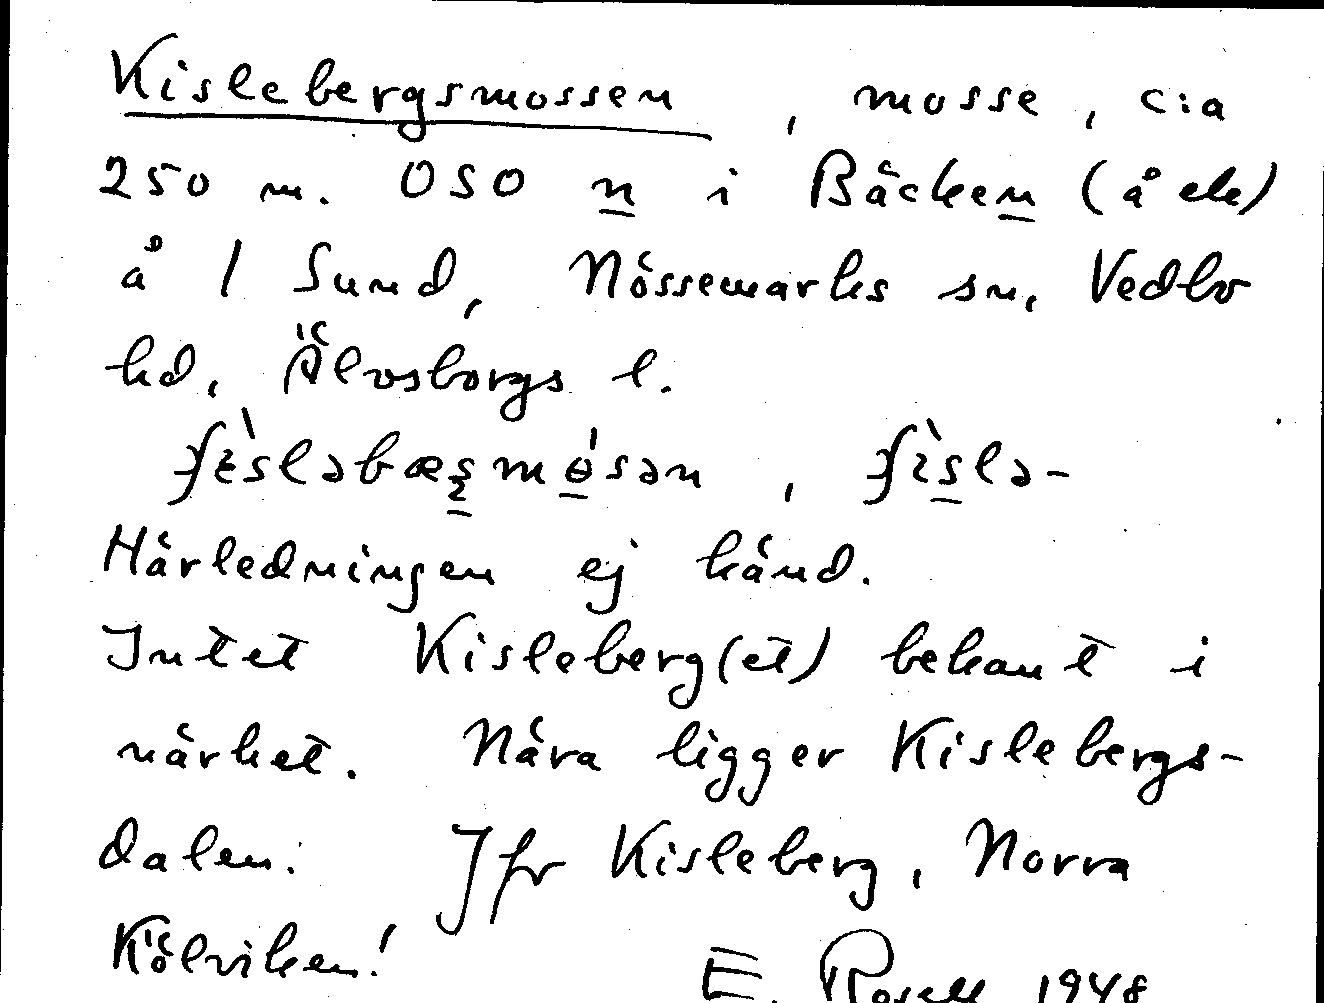 Kislebergsmossen, mosse, c:a
250 m. OSO n i Bäcken (å ek)
å / Sund, Nössemarks sn, Vedbo
hd, Älvsborgs l.
Härledningen ej känd.
Intet Kisleberg(et) bekant i
närhet. Nära ligger Kislebergs-
dalen. Jfr Kisleberg, Norra
Kölviken!
E. Rosell 1948